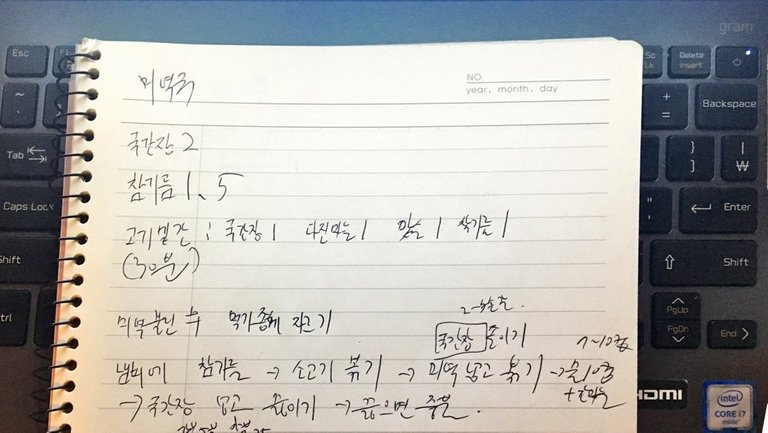 gram
Esc
Delete
Insert
NO.
year. month. day
미역국
Backspace
국간장 2
Tab
참기름 1.5
Caps Lock
Enter
고기밑간 : 국간장 1 다진마늘 1 맛술 1 참기름 1
(30분)
Shift
Shift
미역불린 후 먹기좋게 자르기
PgUp
PgDn
End
국간장 졸이기
냄비에 참기름 → 소고기 볶기 → 미역 넣고 볶기 →
→ 국간장 넣고 끓이기 → 끓으면 중불.
HDMI
intel
CORE i7
inside